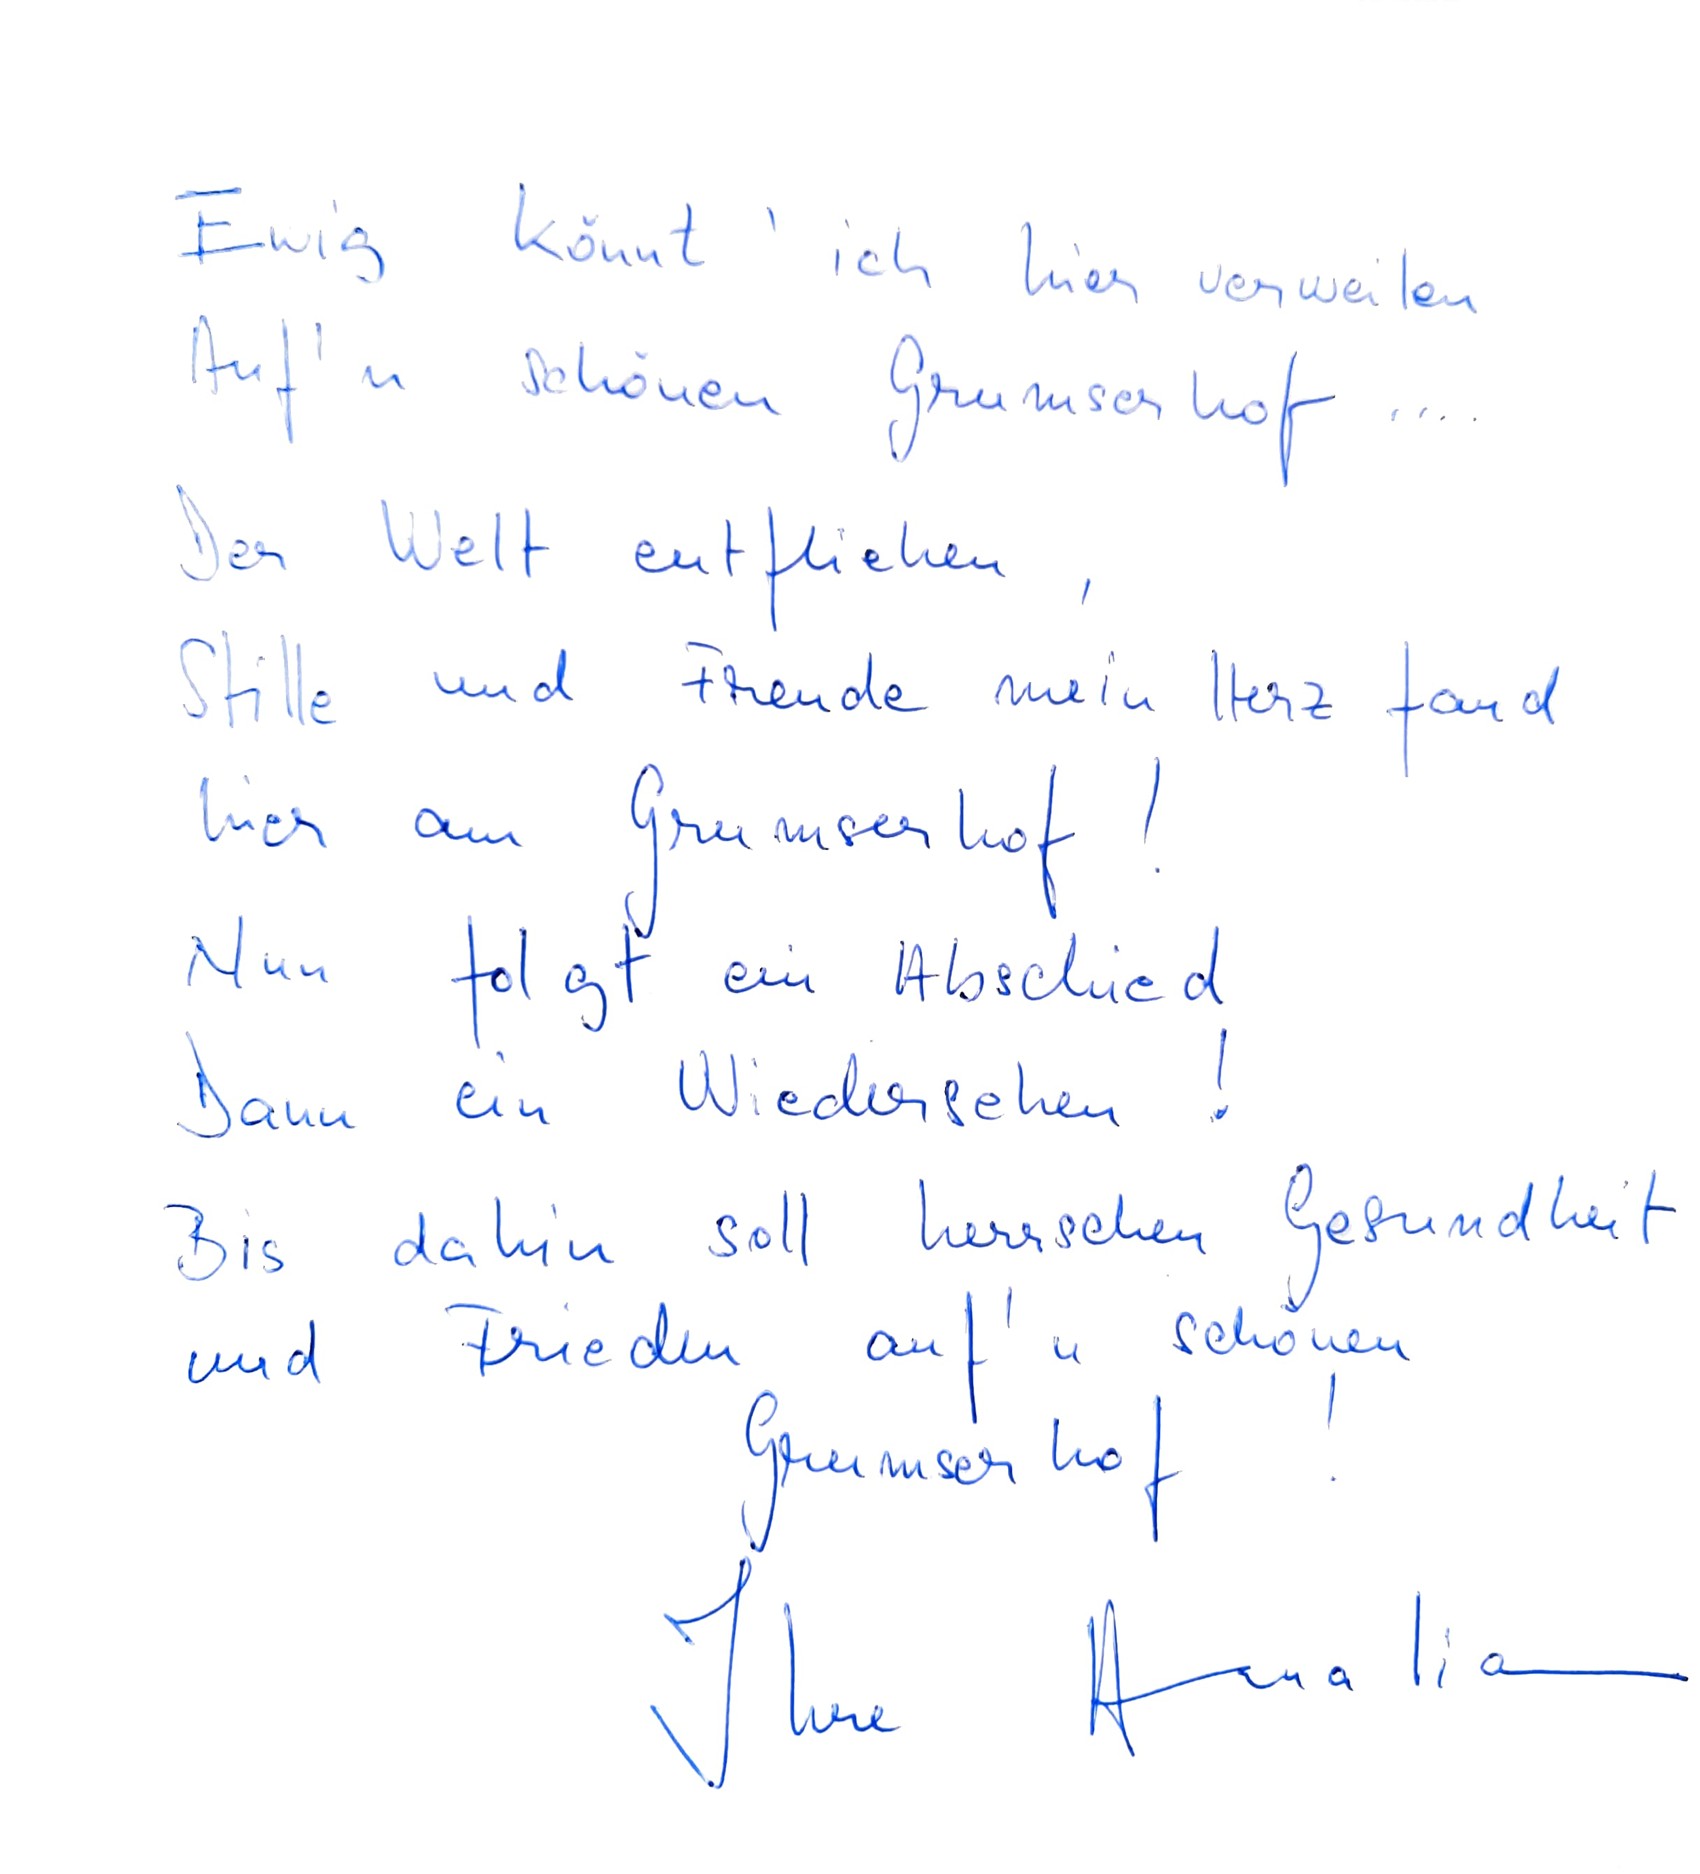 Ewig könnt' ich hier verweilen
Auf'n schönen Grumserhof .....
Der Welt entfliehen,
Stille und Freude mein Herz fand
hier am Grumserhof!
Nun folgt ein Abschied
Dann ein Wiedersehen!
Bis dahin soll herrschen Gesundheit
und Frieden auf'n schönen
Grumserhof!
Ihre Amalia